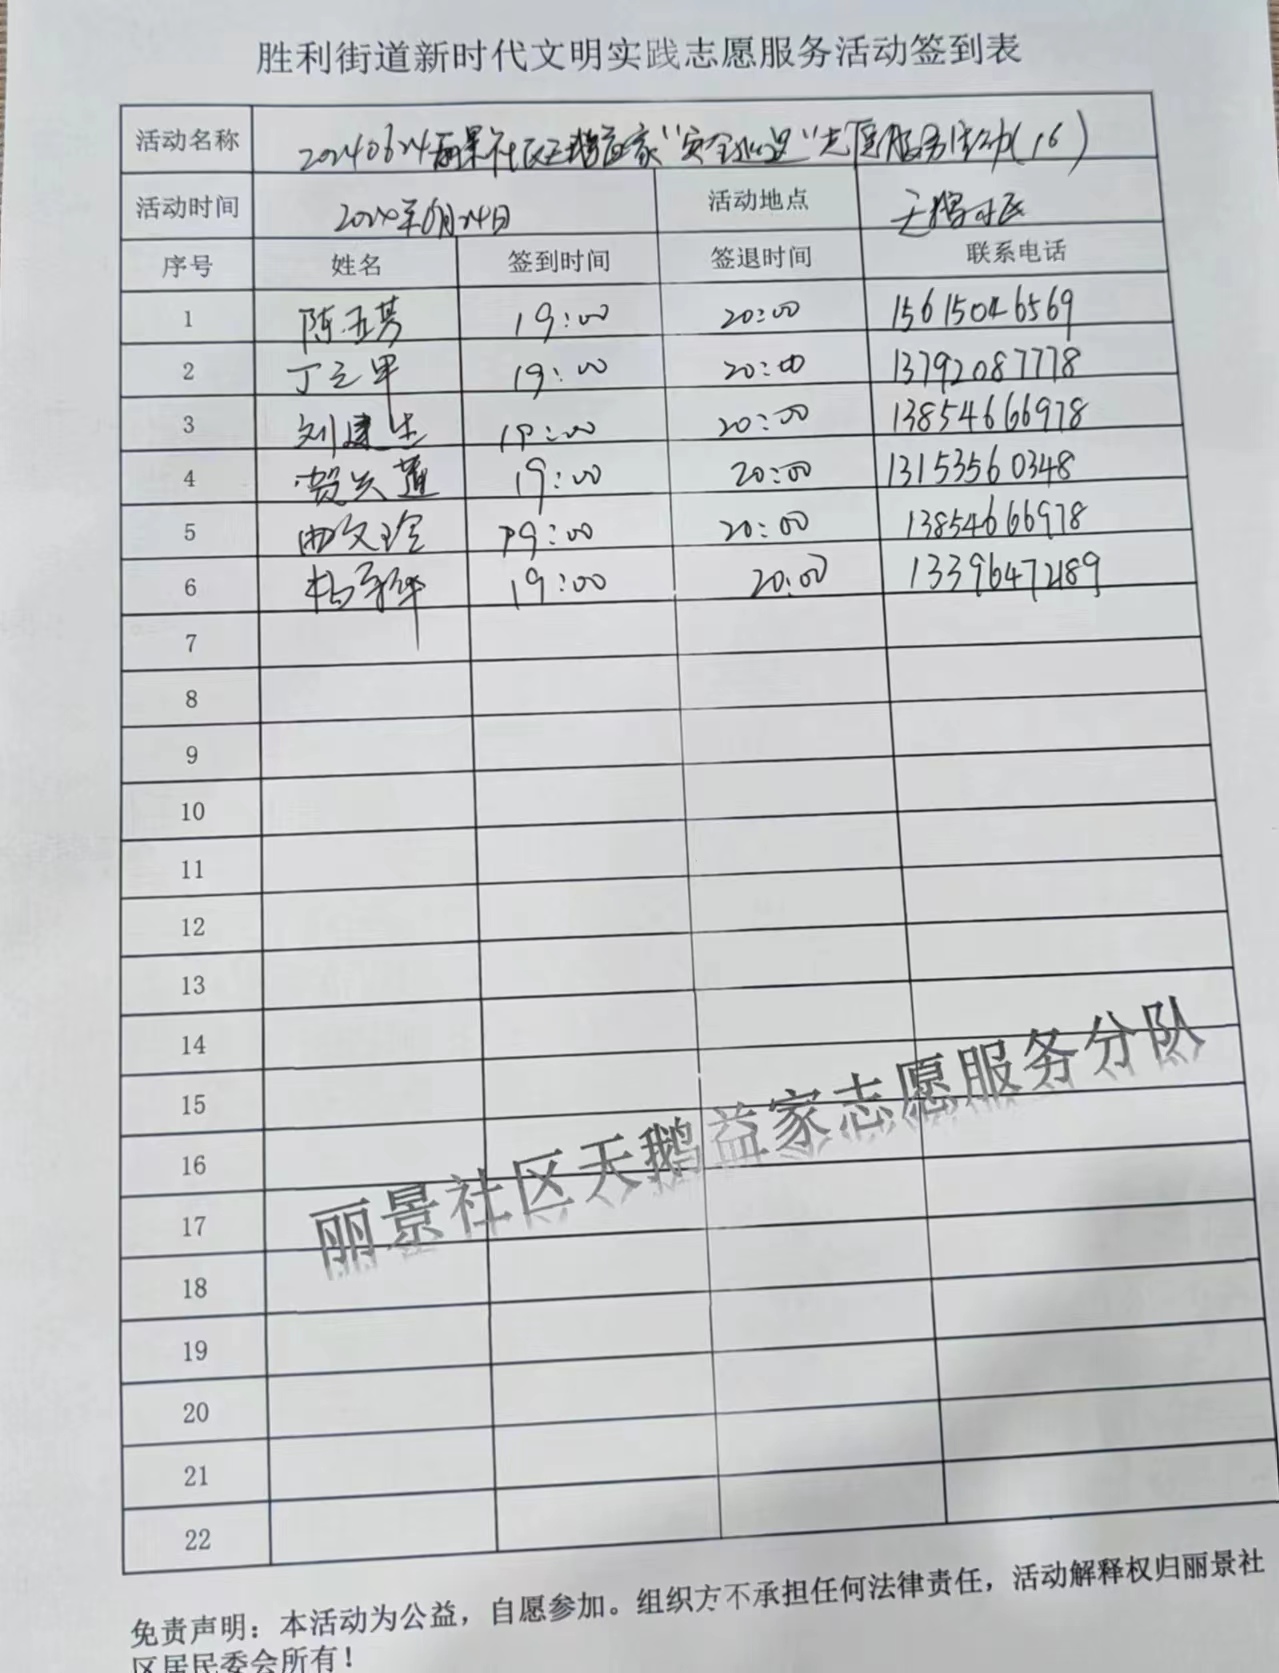 胜利街道新时代文明实践志愿服务活动签到表
活动名称 20240624丽景社区天鹅益家“安全巡逻”志愿服务活动(16)
活动时间 2024年6月24日 活动地点 天鹅小区
序号 姓名 签到时间 签退时间 联系电话
1 陈玉芳 19:00 20:00 15615046569
2 丁立甲 19:00 20:00 13792087778
3 刘建生 19:00 20:00 13854666978
4 贺兴莲 19:00 20:00 13153560348
5 19:00 20:00 13854666978
6 19:00 20:00 13396472189
7
8
9
10
11
12
13
14
15
16
17
18
19
20
21
22
丽景社区天鹅益家志愿服务分队
免责声明：本活动为公益，自愿参加。组织方不承担任何法律责任，活动解释权归丽景社
区居民委会所有！